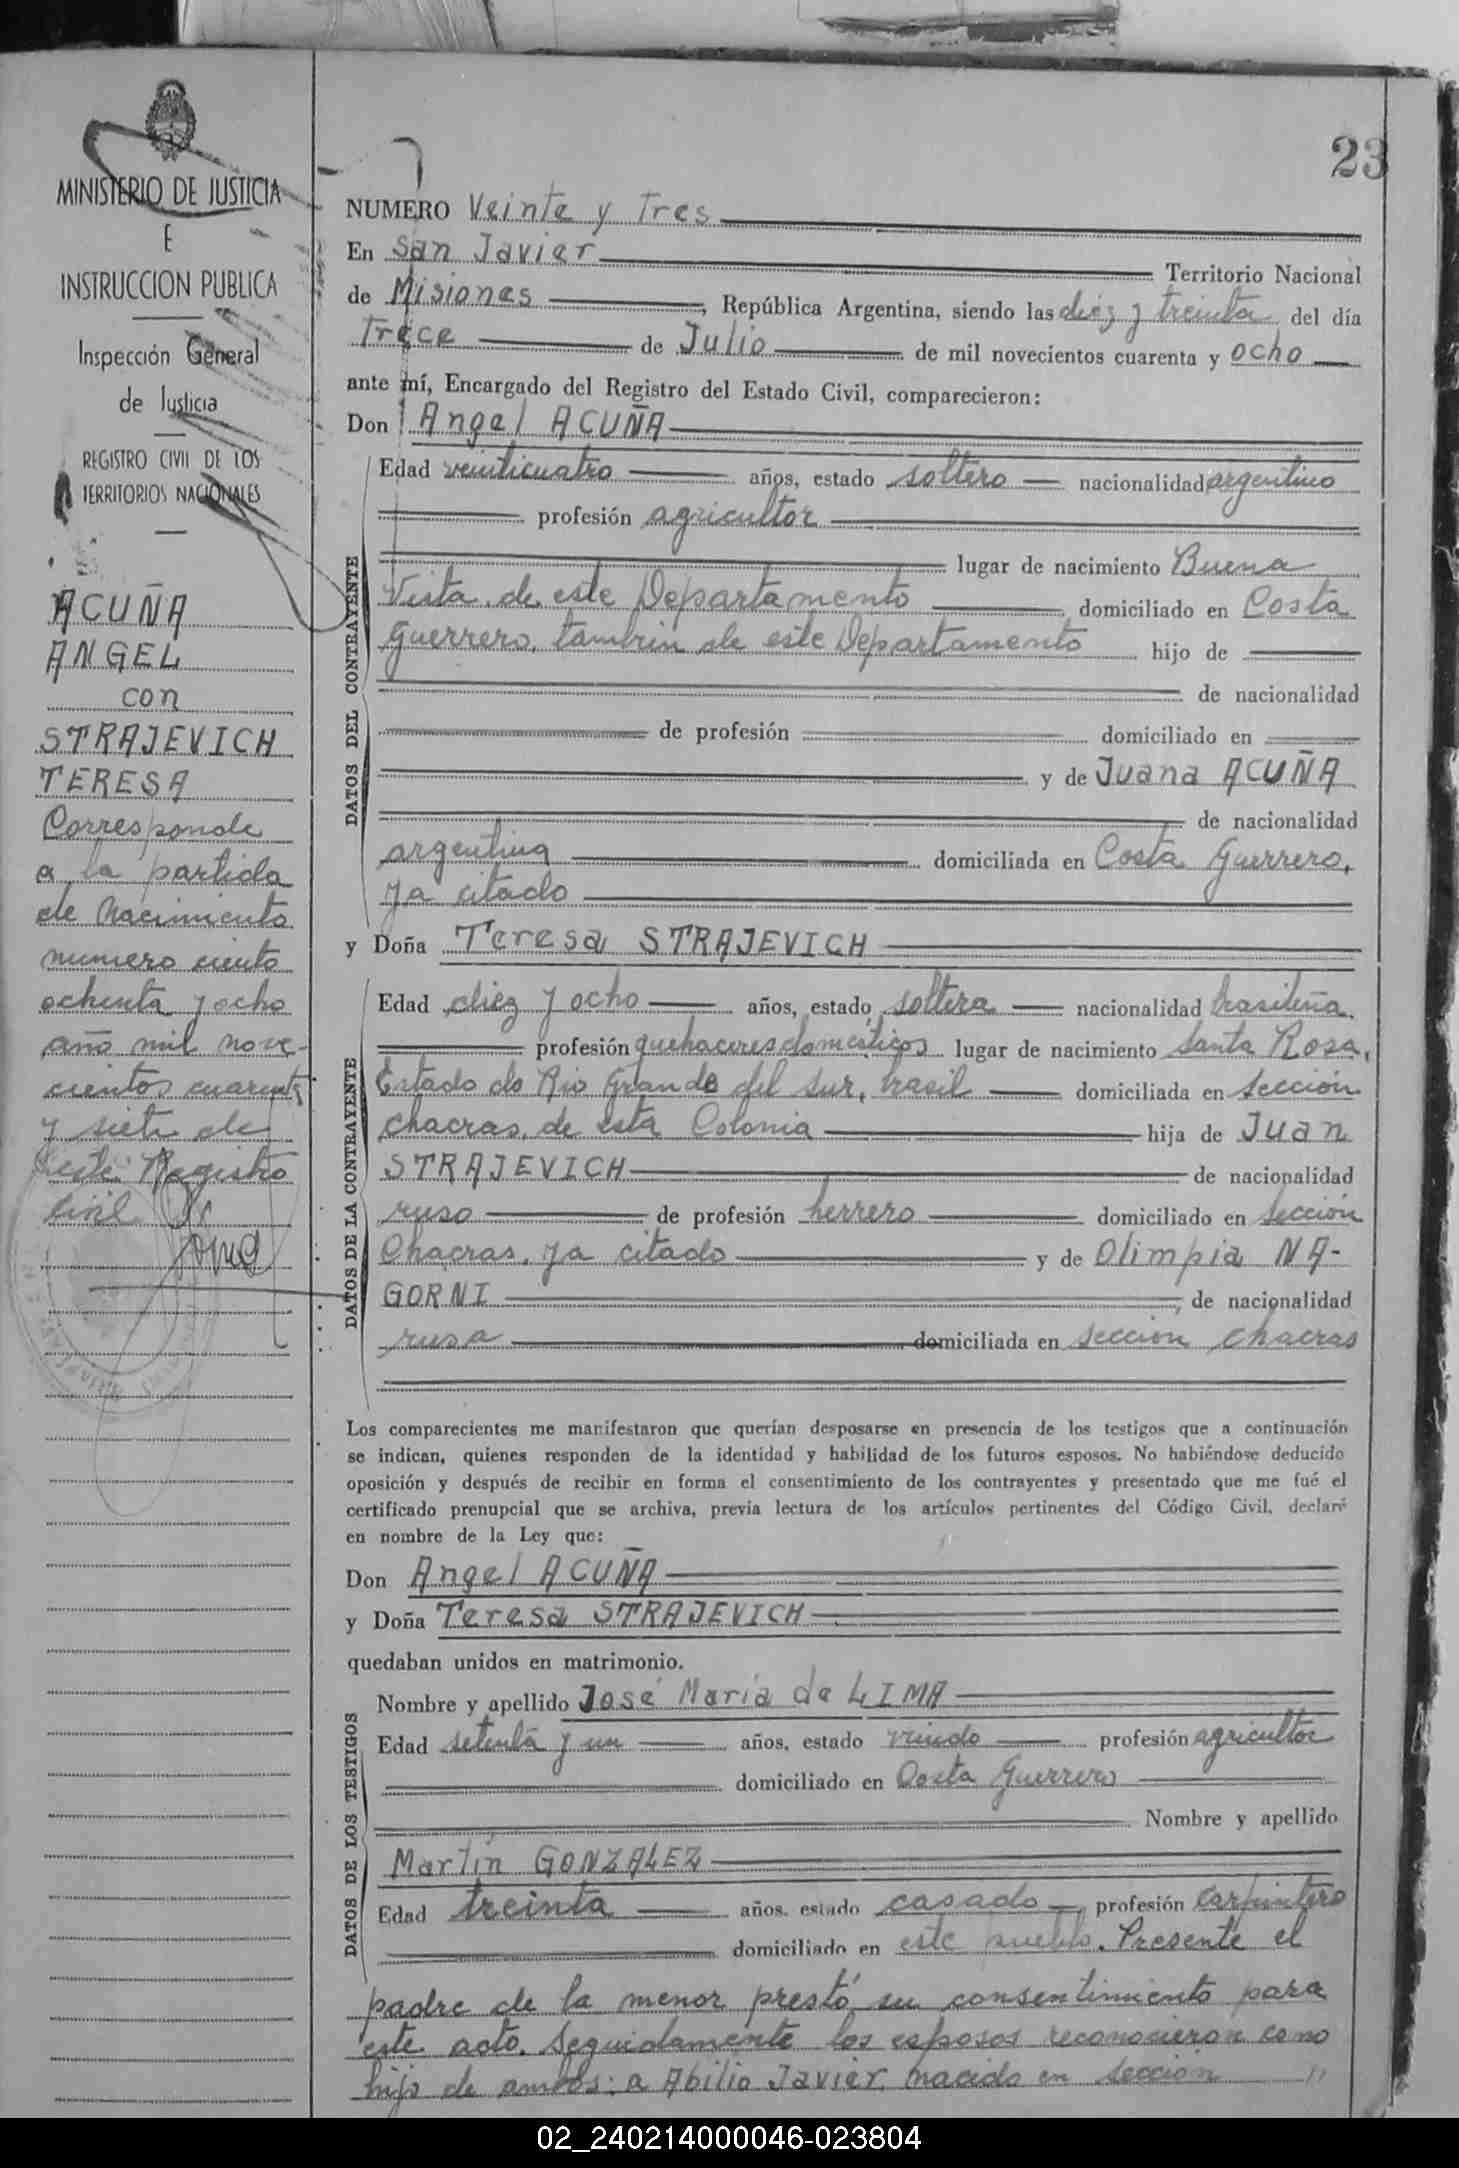 23
MINISTERIO DE JUSTICIA
E
INSTRUCCION PUBLICA
Inspección General
de Justicia
REGISTRO CIVIL DE LOS
TERRITORIOS NACIONALES
ACUÑA
ANGEL
con
STRAJEVICH
TERESA
Corresponde
a la partida
de Nacimiento
numero ciento
ochenta y ocho
año mil nove-
cientos cuarenta
y siete de
este Registro
Civil
NUMERO Veinte y Tres
En San Javier Territorio Nacional
de Misiones, República Argentina, siendo las diez y treinta del día
Trece de Julio de mil novecientos cuarenta y ocho
ante mí, Encargado del Registro del Estado Civil, comparecieron:
Don Angel ACUÑA
DATOS DEL CONTRAYENTE
Edad veinticuatro años, estado soltero nacionalidad argentino
profesión agricultor
lugar de nacimiento Buena
Vista, de este Departamento, domiciliado en Costa
Guerrero, tambien de este Departamento hijo de
de nacionalidad
de profesión domiciliado en
y de Juana ACUÑA
de nacionalidad
argentina domiciliada en Costa Guerrero,
ya citado
y Doña Teresa STRAJEVICH
DATOS DE LA CONTRAYENTE
Edad diez y ocho años, estado soltera nacionalidad brasileña
profesión quehaceres domésticos lugar de nacimiento Santa Rosa,
Estado do Rio Grande del Sur, Brasil domiciliada en Sección
chacras, de esta Colonia hija de Juan
STRAJEVICH de nacionalidad
ruso de profesión herrero domiciliado en Sección
Chacras, ya citado y de Olimpia NA-
GORNI, de nacionalidad
rusa domiciliada en sección chacras
Los comparecientes me manifestaron que querían desposarse en presencia de los testigos que a continuación
se indican, quienes responden de la identidad y habilidad de los futuros esposos. No habiéndose deducido
oposición y después de recibir en forma el consentimiento de los contrayentes y presentado que me fué el
certificado prenupcial que se archiva, previa lectura de los artículos pertinentes del Código Civil, declaré
en nombre de la Ley que:
Don Angel ACUÑA
y Doña Teresa STRAJEVICH
quedaban unidos en matrimonio.
DATOS DE LOS TESTIGOS
Nombre y apellido José María de LIMA
Edad setenta y un años, estado viudo profesión agricultor
domiciliado en Costa Guerrero
Nombre y apellido
Martín GONZALEZ
Edad treinta años, estado casado profesión Carpintero
domiciliado en este pueblo. Presente el
padre de la menor prestó su consentimiento para
este acto. Seguidamente los esposos reconocieron como
hijo de ambos: a Abilio Javier, nacido en sección "
02_240214000046-023804